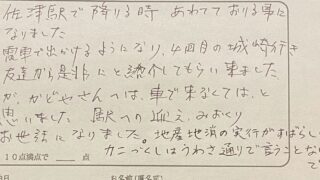 佐津駅で降りる時 あわてており る事に
なりました
電車で出かけるようになり、4回目の城崎行き
友達から是非にと紹介してもらい来ました
が、かどやさんへは、車で来なくては、と
思いました 駅への迎え、みおくり
お世話になりました 地産地消の実行がすばらし
カニづくしはうわさ通りで言うことな
で
10点満点で 点
お名前(匿名可)